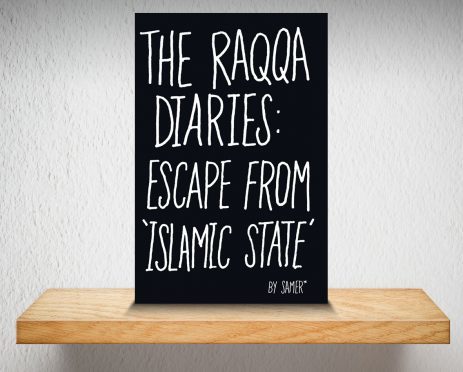 THE RAQQA
DIARIES:
ESCAPE FROM
'ISLAMIC STATE'
BY SAMER